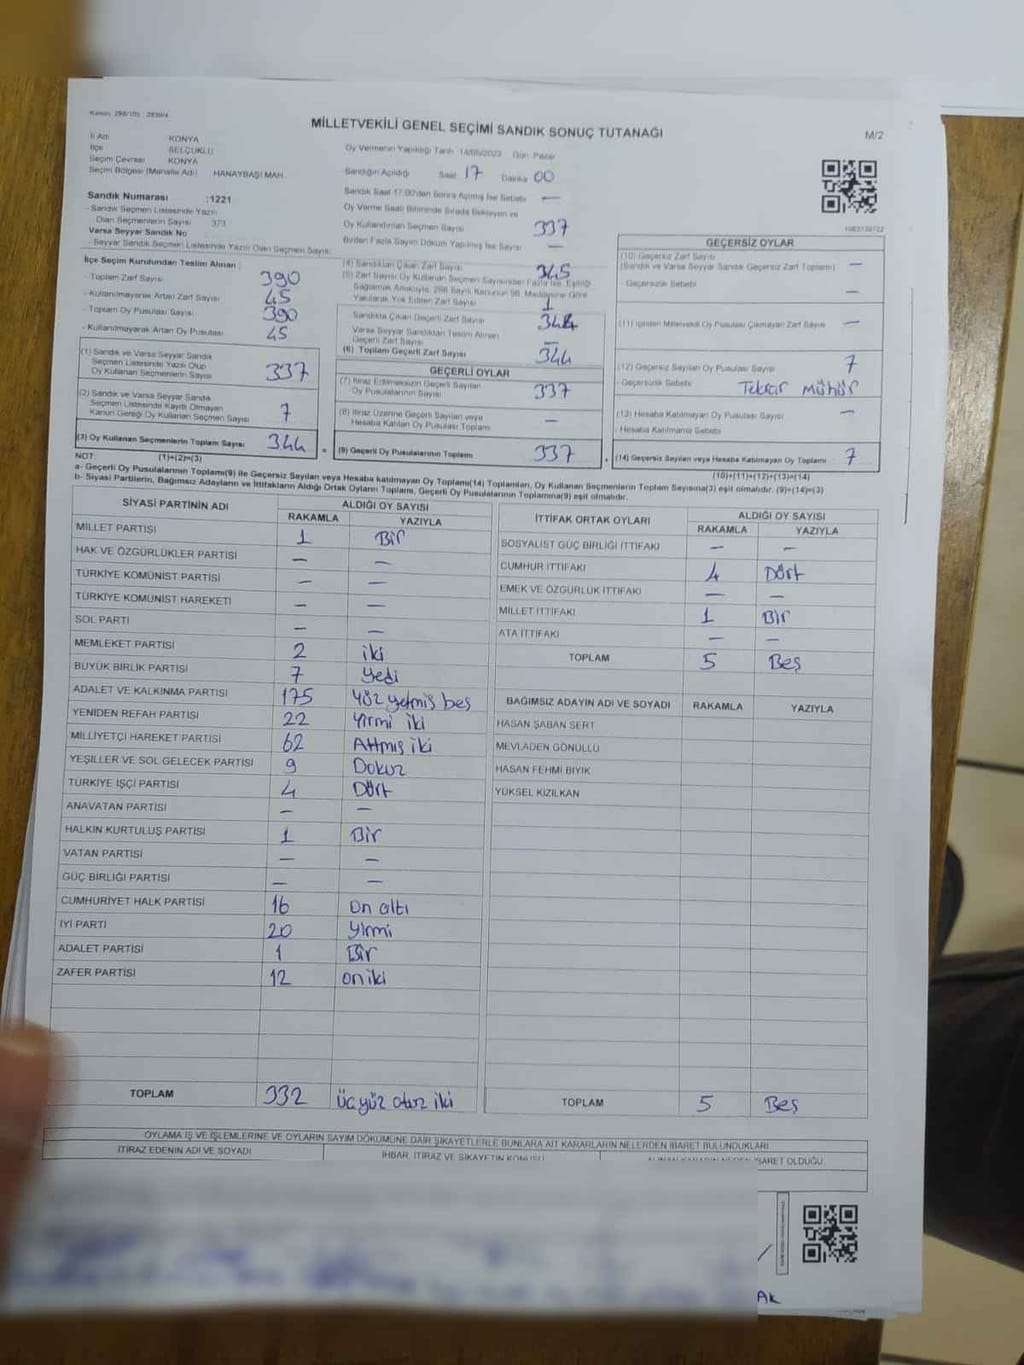 Kanun: 298/105 2839/4
MİLLETVEKİLİ GENEL SEÇİMİ SANDIK SONUÇ TUTANAĞI
M/2
İl Adı KONYA
İlçe SELÇUKLU
Seçim Çevresi KONYA
Seçim Bölgesi (Mahalle Adı) HANAYBAŞI MAH.
Oy Vermenin Yapıldığı Tarih 14/05/2023 Gün Pazar
Sandığın Açıldığı Saat 17 Dakika 00
Sandık Saat 17:00'den Sonra Açılmış İse Sebebi —
Oy Verme Saati Bitiminde Sırada Bekleyen ve
Oy Kullandırılan Seçmen Sayısı 337
Birden Fazla Sayım Döküm Yapılmış İse Sayısı —
Sandık Numarası :1221
- Sandık Seçmen Listesinde Yazılı
Olan Seçmenlerin Sayısı 373
Varsa Seyyar Sandık No
- Seyyar Sandık Seçmen Listesinde Yazılı Olan Seçmen Sayısı:
İlçe Seçim Kurulundan Teslim Alınan
- Toplam Zarf Sayısı 390
- Kullanılmayarak Artan Zarf Sayısı 45
- Toplam Oy Pusulası Sayısı 390
- Kullanılmayarak Artan Oy Pusulası 45
(1) Sandık ve Varsa Seyyar Sandık
Seçmen Listesinde Yazılı Olup
Oy Kullanan Seçmenlerin Sayısı 337
(2) Sandık ve Varsa Seyyar Sandık
Seçmen Listesinde Kayıtlı Olmayan
Kanun Gereği Oy Kullanan Seçmen Sayısı 7
(3) Oy Kullanan Seçmenlerin Toplam Sayısı 344
(1)+(2)=(3)
(4) Sandıktan Çıkan Zarf Sayısı 345
(5) Zarf Sayısı Oy Kullanan Seçmen Sayısından Fazla İse, Eşitliği
Sağlamak Amacıyla, 298 Sayılı Kanunun 98. Maddesine Göre
Yakılarak Yok Edilen Zarf Sayısı 1
Sandıkta Çıkan Geçerli Zarf Sayısı 344
Varsa Seyyar Sandıktan Teslim Alınan
Geçerli Zarf Sayısı —
(6) Toplam Geçerli Zarf Sayısı 344
GEÇERLİ OYLAR
(7) İtiraz Edilmeksizin Geçerli Sayılan
Oy Pusulalarının Sayısı 337
(8) İtiraz Üzerine Geçerli Sayılan veya
Hesaba Katılan Oy Pusulası Toplamı —
(9) Geçerli Oy Pusulalarının Toplamı 337
GEÇERSİZ OYLAR
(10) Geçersiz Zarf Sayısı
(Sandık ve Varsa Seyyar Sandık Geçersiz Zarf Toplamı) —
- Geçersizlik Sebebi —
(11) İçinden Milletvekili Oy Pusulası Çıkmayan Zarf Sayısı —
(12) Geçersiz Sayılan Oy Pusulası Sayısı 7
- Geçersizlik Sebebi Tekrar Mühür
(13) Hesaba Katılmayan Oy Pusulası Sayısı —
- Hesaba Katılmama Sebebi
(14) Geçersiz Sayılan veya Hesaba Katılmayan Oy Toplamı 7
(10)+(11)+(12)+(13)=(14)
NOT:
a- Geçerli Oy Pusulalarının Toplamı(9) ile Geçersiz Sayılan veya Hesaba katılmayan Oy Toplamı(14) Toplamları, Oy Kullanan Seçmenlerin Toplam Sayısına(3) eşit olmalıdır. (9)+(14)=(3)
b- Siyasi Partilerin, Bağımsız Adayların ve İttifakların Aldığı Ortak Oyların Toplamı, Geçerli Oy Pusulalarının Toplamına(9) eşit olmalıdır.
SİYASİ PARTİNİN ADI ALDIĞI OY SAYISI
RAKAMLA YAZIYLA
MİLLET PARTİSİ 1 Bir
HAK VE ÖZGÜRLÜKLER PARTİSİ — —
TÜRKİYE KOMÜNİST PARTİSİ — —
TÜRKİYE KOMÜNİST HAREKETİ — —
SOL PARTİ — —
MEMLEKET PARTİSİ 2 iki
BÜYÜK BİRLİK PARTİSİ 7 Yedi
ADALET VE KALKINMA PARTİSİ 175 Yüz yetmiş beş
YENİDEN REFAH PARTİSİ 22 Yirmi iki
MİLLİYETÇİ HAREKET PARTİSİ 62 Altmış iki
YEŞİLLER VE SOL GELECEK PARTİSİ 9 Dokuz
TÜRKİYE İŞÇİ PARTİSİ 4 Dört
ANAVATAN PARTİSİ — —
HALKIN KURTULUŞ PARTİSİ 1 Bir
VATAN PARTİSİ — —
GÜÇ BİRLİĞİ PARTİSİ — —
CUMHURİYET HALK PARTİSİ 16 On altı
İYİ PARTİ 20 Yirmi
ADALET PARTİSİ 1 Bir
ZAFER PARTİSİ 12 on iki
TOPLAM 332 Üçyüz otuz iki
İTTİFAK ORTAK OYLARI ALDIĞI OY SAYISI
RAKAMLA YAZIYLA
SOSYALİST GÜÇ BİRLİĞİ İTTİFAKI — —
CUMHUR İTTİFAKI 4 Dört
EMEK VE ÖZGÜRLÜK İTTİFAKI — —
MİLLET İTTİFAKI 1 Bir
ATA İTTİFAKI — —
TOPLAM 5 Beş
BAĞIMSIZ ADAYIN ADI VE SOYADI RAKAMLA YAZIYLA
HASAN ŞABAN SERT
MEVLADEN GÖNÜLLÜ
HASAN FEHMİ BIYIK
YÜKSEL KIZILKAN
TOPLAM 5 Beş
OYLAMA İŞ VE İŞLEMLERİNE VE OYLARIN SAYIM DÖKÜMÜNE DAİR ŞİKAYETLERLE BUNLARA AİT KARARLARIN NELERDEN İBARET BULUNDUKLARI
İTİRAZ EDENİN ADI VE SOYADI İHBAR, İTİRAZ VE ŞİKAYETİN KONUSU ALINAN KARARIN NEDEN İBARET OLDUĞU
AK